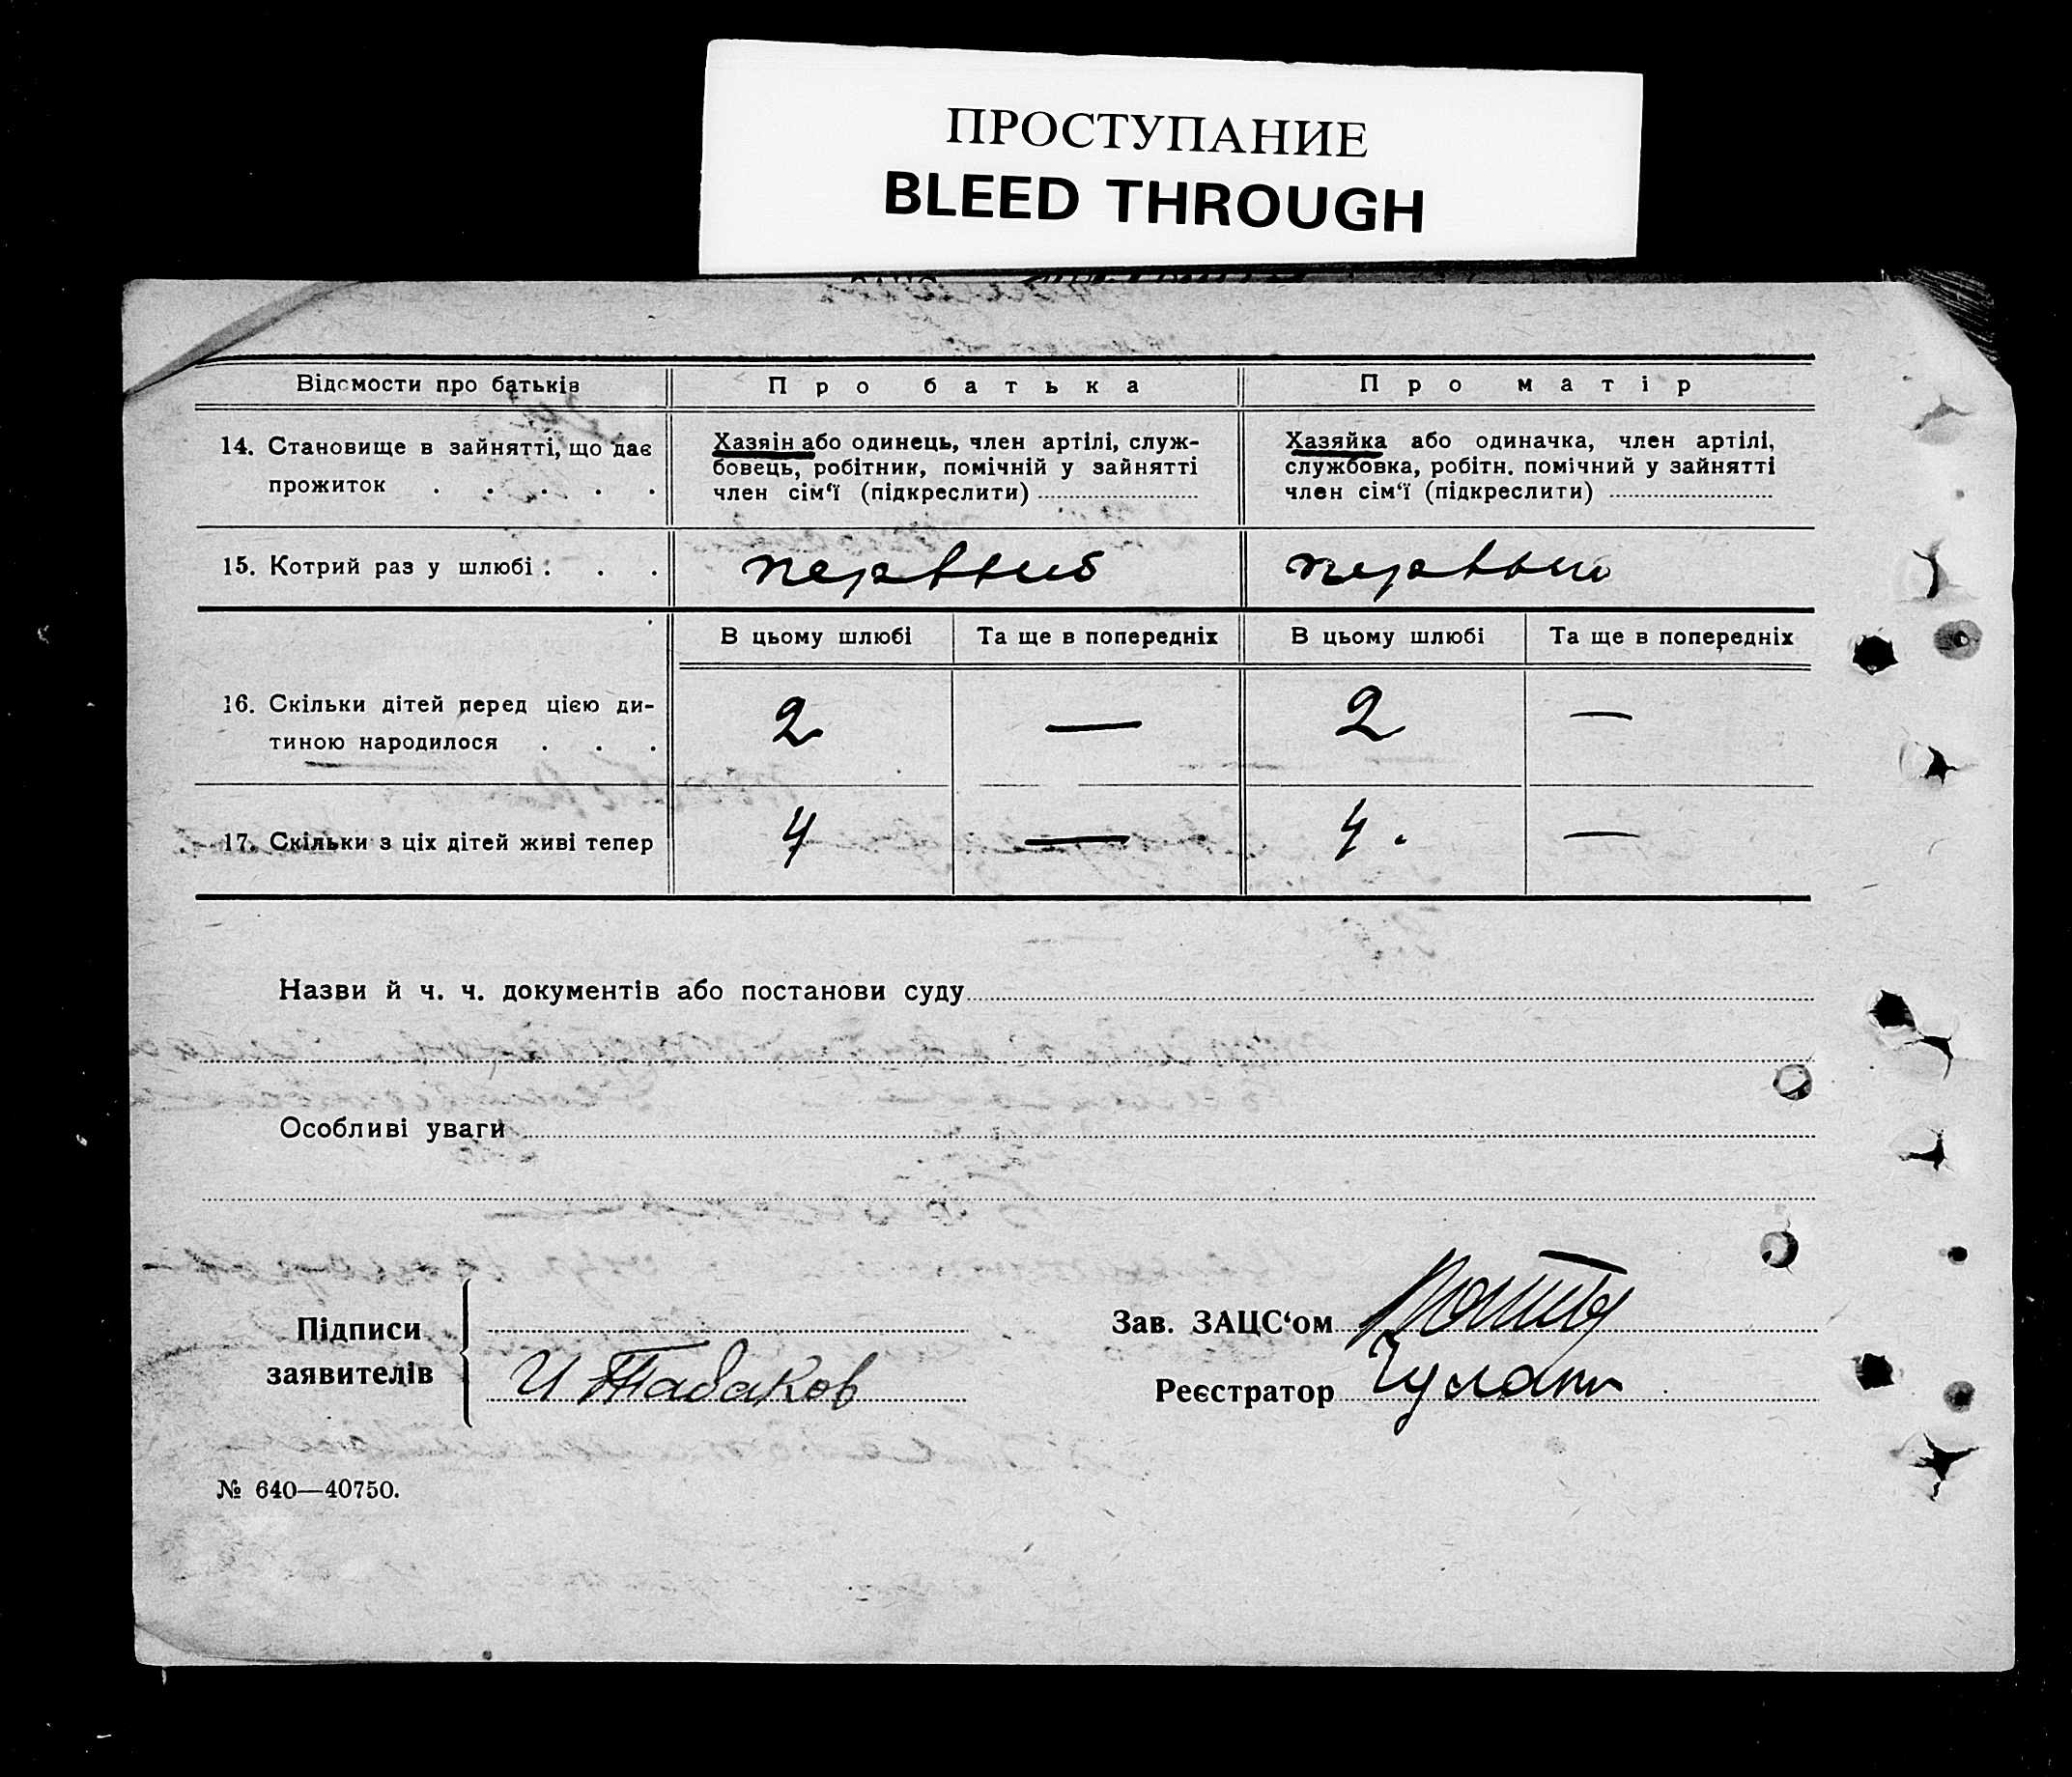 ПРОСТУПАНИЕ
BLEED THROUGH
Відомости про батьків Про батька Про матір
14. Становище в зайнятті, що дає
прожиток . . . . .
Хазяін або одинець, член артілі, служ-
бовець, робітник, помічній у зайнятті
член сім‘ї (підкреслити)
Хазяйка або одиначка, член артілі,
службовка, робітн. помічний у зайнятті
член сім‘ї (підкреслити)
15. Котрий раз у шлюбі . . . первый первый
В цьому шлюбі Та ще в попередніх В цьому шлюбі Та ще в попередніх
16. Скільки дітей перед цією ди-
тиною народилося . . . 2 — 2 —
17. Скільки з ціх дітей живі тепер 4 — 4. —
Назви й ч. ч. документів або постанови суду
Особливі уваги
Підписи
заявителів
И Табаков
Зав. ЗАЦС‘ом
Реєстратор
№ 640—40750.